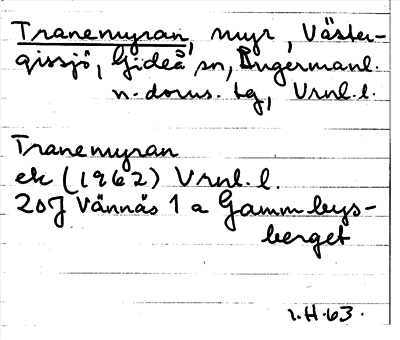 Tranemyran, myr, Väster-
gissjö, Gideå sn, Ångermanl.
n. doms. tg, Vrnl. l.
Tranemyran
ek (1962) Vrnl. l.
20J Vännäs 1 a Gammbys-
berget
1.H.63.